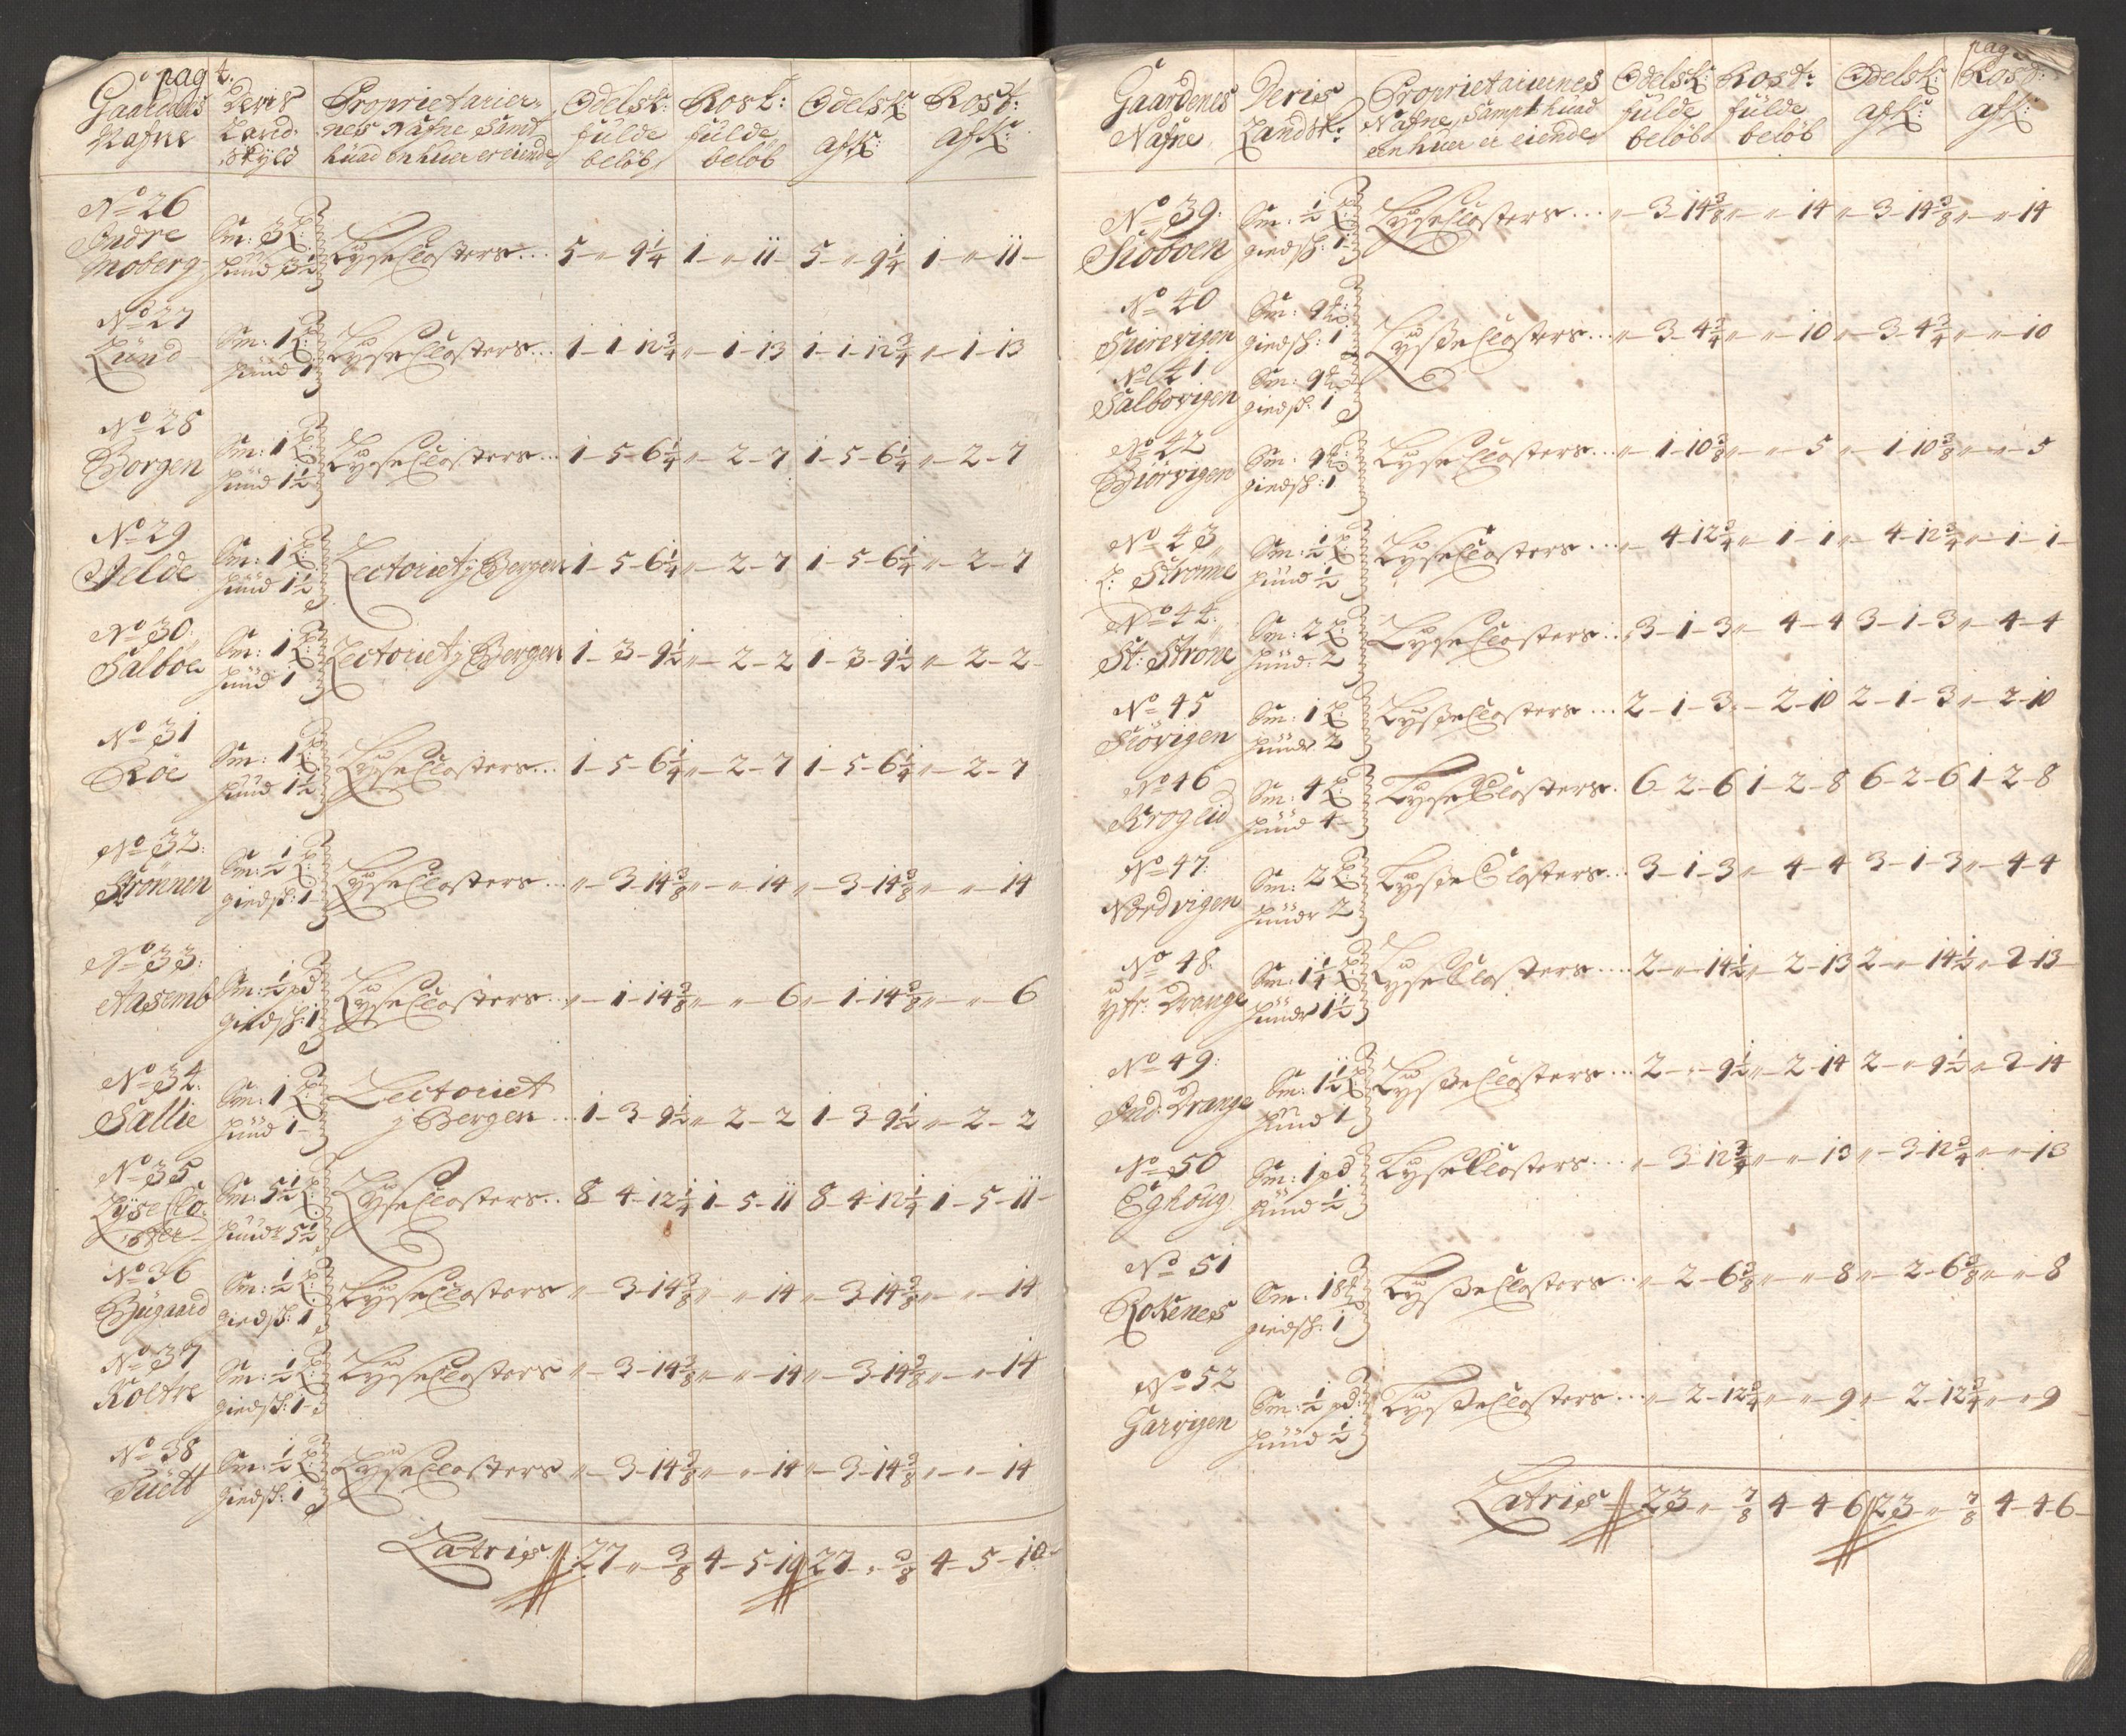 pag 4.
Gaardens Nafne
Deris Land: Skyld
Proprietarier:nes Nafne Samt huad en huer er eiende
Odelsk: fulde beløb
Rost: fulde beløb
Odelsk: afk:
Rost: afk:
No 26 Indre Moberg Sm: 3 hud 3½ Lyse Closters... 5 - „ - 9¼ 1 - „ - 11 5 - „ - 9¼ 1 - „ - 11
No 27 Lund Sm: 1 hud 1 Lyse Closters... 1 - 1 - 12¾ „ - 1 - 13 1 - 1 - 12¾ „ - 1 - 13
No 28 Borgen Sm: 1 hud 1½ Lyse Closters... 1 - 5 - 6¼ „ - 2 - 7 1 - 5 - 6¼ „ - 2 - 7
No 29 Sm: 1 hud 1½ Lectoriet j Bergen 1 - 5 - 6¼ „ - 2 - 7 1 - 5 - 6¼ „ - 2 - 7
No 30: Salboe Sm: 1 hud 1 Lectoriet j Bergen 1 - 3 - 9½ „ - 2 - 2 1 - 3 - 9½ „ - 2 - 2
No 31 Röe Sm: 1 hud 1½ Lyse Closters... 1 - 5 - 6¼ „ - 2 - 7 1 - 5 - 6¼ „ - 2 - 7
No 32: Strönnen Sm: ½ giedsk: 1 Lyse Closters... „ - 3 - 14⅜ „ - „ - 14 „ - 3 - 14⅜ „ - „ - 14
No 33: Aasemb Sm: ½ pd giedsk: 1 Lyse Closters... „ - 1 - 14⅜ „ - „ - 6 „ - 1 - 14⅜ „ - „ - 6
No 34: Sallie Sm: 1 hud 1 Lectoriet j Bergen... 1 - 3 - 9½ „ - 2 - 2 1 - 3 - 9½ „ - 2 - 2
No 35 Lyse Clo:ster Sm: 5½ hudr 5½ Lyse Closters.. 8 - 4 - 12¼ 1 - 5 - 11 8 - 4 - 12¼ 1 - 5 - 11
No 36 Bygaard Sm: ½ giedsk: 1 Lyse Closters „ - 3 - 14⅜ „ - „ - 14 „ - 3 - 14⅜ „ - „ - 14
No 37 Koltre Sm: ½ giedsk: 1 Lyse Closters „ - 3 - 14⅜ „ - „ - 14 „ - 3 - 14⅜ „ - „ - 14
No 38 Sm: ½ giedsk: 1 Lyse Closters „ - 3 - 14⅜ „ - „ - 14 „ - 3 - 14⅜ „ - „ - 14
Latris 27 - „ - ⅜ 4 - 5 - 10 27 - „ - ⅜ 4 - 5 - 10
pag
Gaardenes Nafne
Deris Landsk:
Proprietariernes Nafne, Sampt huad een huer er eiende
Odelsk: fulde beløb
Rost: fulde beløb
Odelsk: afk:
Rost: afk:
No 39: Siöboen Sm: ½ giedsk: 1 Lyse Closters... „ - 3 - 14⅜ „ - „ - 14 „ - 3 - 14⅜ „ - „ - 14
No 40 Suirevigen Sm: 9 giedsk: 1
No 41 Salbovigen Sm: 9 giedsk: 1 Lysse Closters... „ - 3 - 4¾ „ - „ - 10 „ - 3 - 4¾ „ - „ - 10
No 42 Biörvigen Sm: 9 giedsk: 1 Lyse Closters... „ - 1 - 10⅜ „ - „ - 5 „ - 1 - 10⅜ „ - „ - 5
No 43 L: Strönne Sm: ½ hud ½ Lyse Closters... „ - 4 - 12¾ „ - 1 - 1 „ - 4 - 12¾ „ - 1 - 1
No 44: St: Ströne Sm: 2 hud: 2 Lyse Closters.. 3 - 1 - 3 „ - 4 - 4 3 - 1 - 3 „ - 4 - 4
No 45 Siövigen Sm: 1 hudr 2 Lysse Closters... 2 - 1 - 3 „ - 2 - 10 2 - 1 - 3 „ - 2 - 10
No 46 Kroglid Sm: 4 hud 4 Lyse Closters. 6 - 2 - 6 1 - 2 - 8 6 - 2 - 6 1 - 2 - 8
No 47: Nordvigen Sm: 2 hudr 2 Lysse Closters... 3 - 1 - 3 „ - 4 - 4 3 - 1 - 3 „ - 4 - 4
No 48: ytr: Drange Sm: 1¼ hudr 1½ Lyse Closters.... 2 - „ - 14½ „ - 2 - 13 2 - „ - 14½ „ - 2 - 13
No 49: Ind: Drange Sm: 1½ hud 1 Lysse Closters... 2 - „ - 9½ „ - 2 - 14 2 - „ - 9½ „ - 2 - 14
No 50 Eghoug Sm: 1 pd hud ½ Lyse Closters... „ - 3 - 12¾ „ - „ - 13 „ - 3 - 12¾ „ - „ - 13
No 51 Rokenes Sm: 18 giedsk: 1 Lysse Closters.. „ - 2 - 6⅜ „ - „ - 8 „ - 2 - 6⅜ „ - „ - 8
No 52 Garvigen Sm: ½ pd: hud ½ Lysse Closters... „ - 2 - 12¾ „ - „ - 9 „ - 2 - 12¾ „ - „ - 9
Latris 23 - „ - ⅞ 4 - 4 - 6 23 - „ - ⅞ 4 - 4 - 6